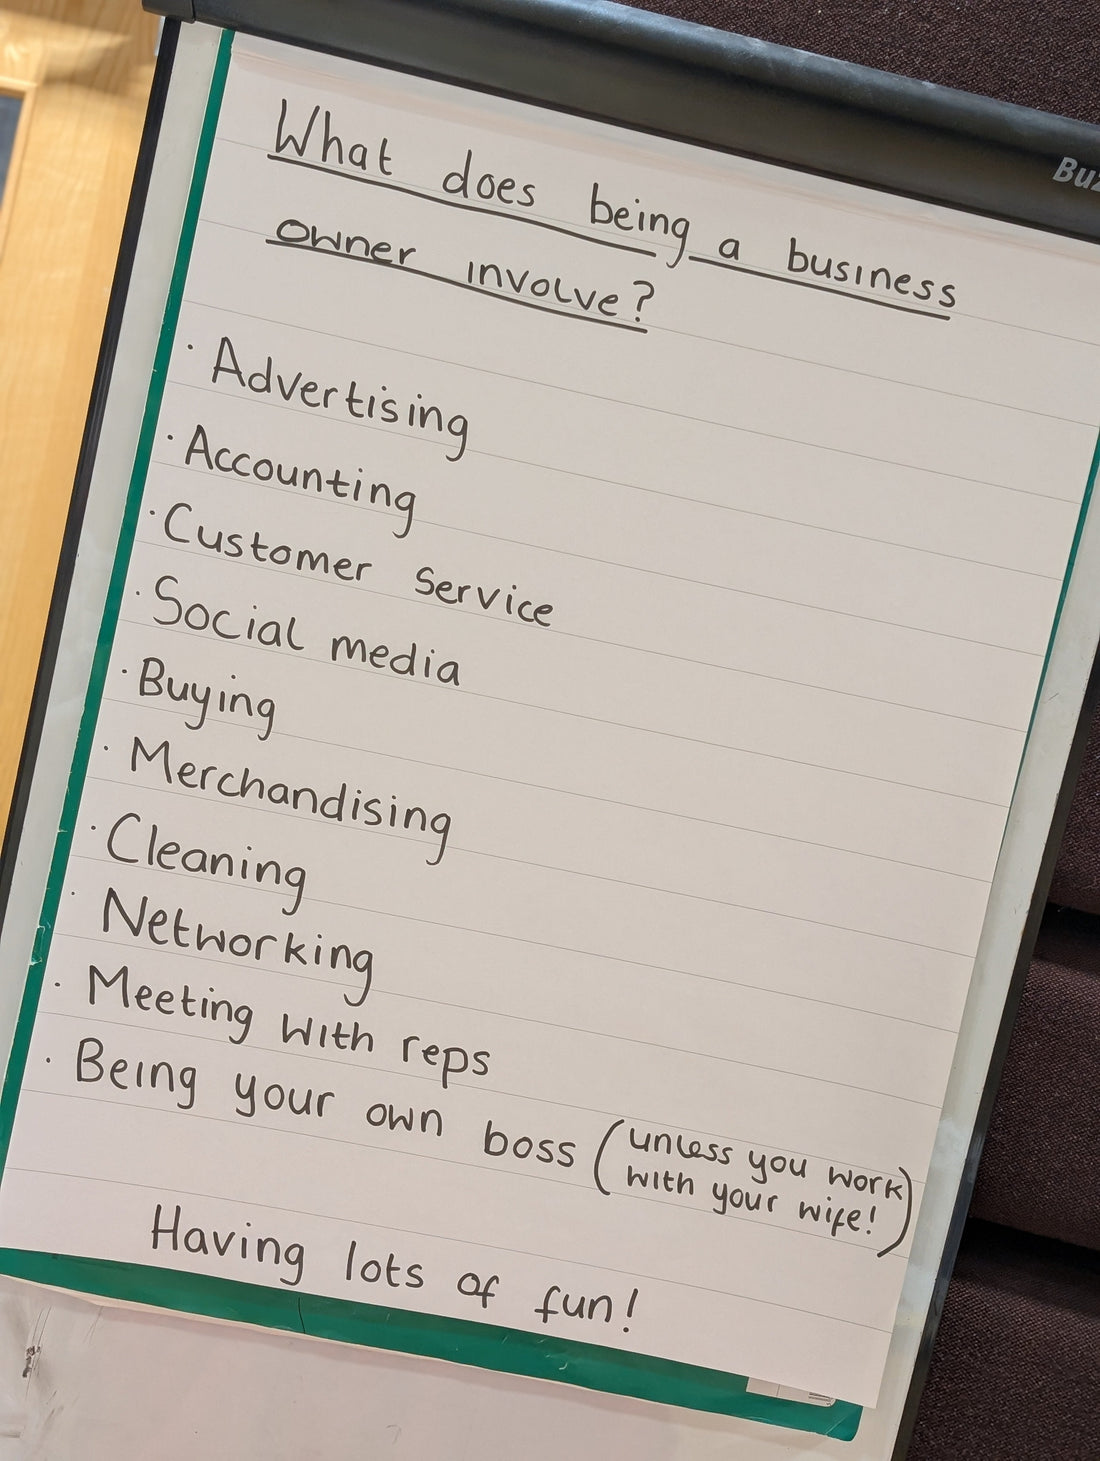 What does being a business
owner involve?
· Advertising
· Accounting
· Customer Service
· Social media
· Buying
· Merchandising
· Cleaning
· Networking
· Meeting with reps
· Being your own boss (unless you work
with your wife!)
Having lots of fun!